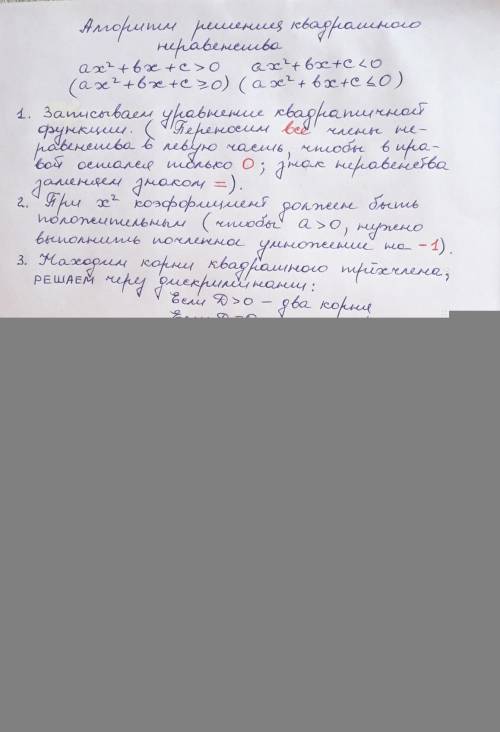 Алгоритм решения квадратного
неравенства
ax²+bx+c>0 ax²+bx+c<0
(ax²+bx+c≥0) (ax²+bx+c≤0)
1. Записываем уравнение квадратичной
функции. (Переносим все члены не-
равенства в левую часть, чтобы в пра-
вой остался только 0; знак неравенства
заменяем знаком =).
2. При x² коэффициент должен быть
положительным (чтобы a>0, нужно
выполнить почленное умножение на -1).
3. Находим корни квадратного трёхчлена,
РЕШАЕМ через дискриминант:
Если D>0 – два корня